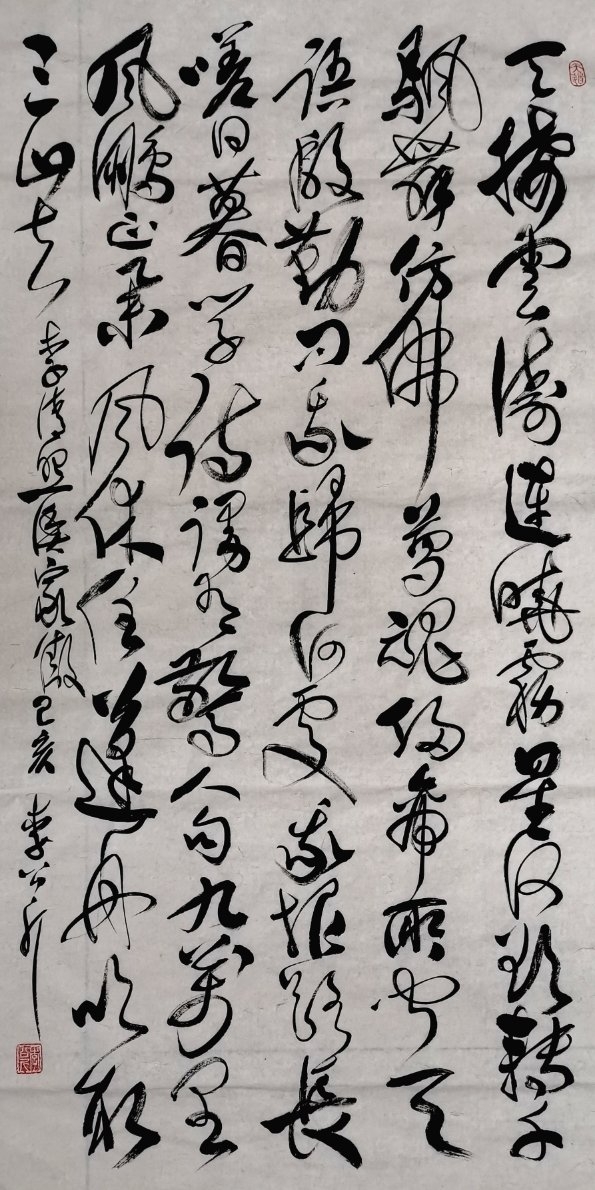 天接雲濤連曉霧星河欲轉千
颿舞仿佛夢魂歸帝所聞天
語殷勤問我歸何處我報路長
嗟日暮學詩謾有驚人句九萬里
風鵬正舉風休住蓬舟吹取
三山去 李清照漁家傲 己亥 李公